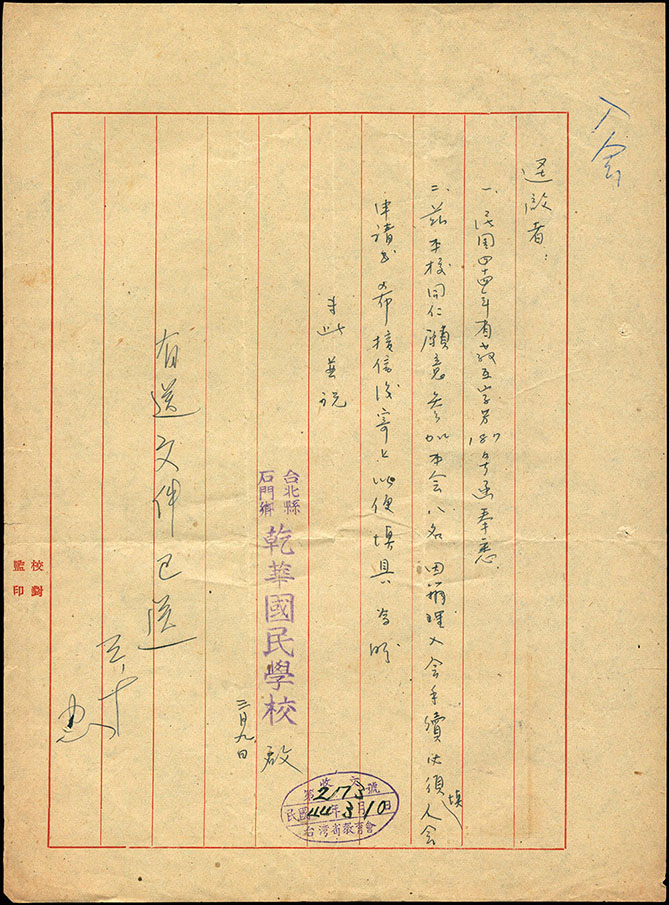 入會
逕啟者：
一、民國四十四年省教互字第187号函奉悉
二、茲本校同仁願意參加本會八名因辦理入會手續必須填入會
申請書希接信後寄上以便填具為盼
此
台北縣
石門鄉
乾華國民學校
啟
三月九日
有送文件已送
收文
第273號
民國44年3月10日
台灣省教育會
校對
監印